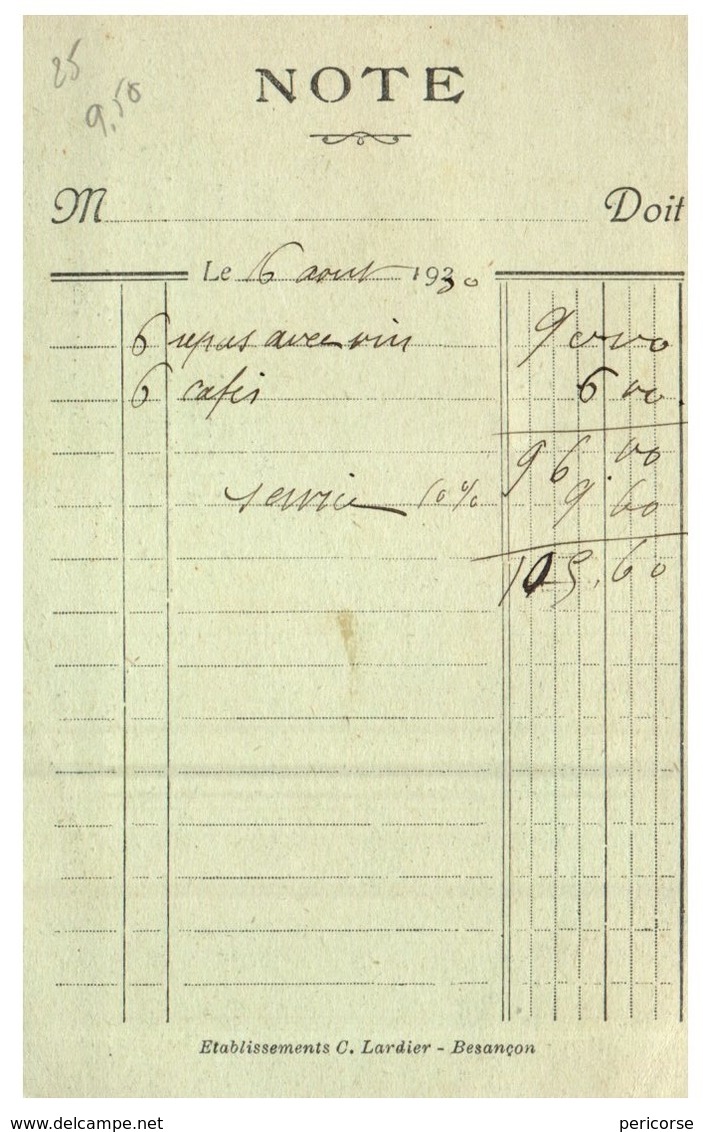 25
9,50
NOTE
M Doit
Le 16 aout 1930
6 repas avec vin 90 00
6 cafés 6 00
96.00
service 10% 9.60
105.60
Etablissements C. Lardier - Besançon
www.delcampe.net
pericorse